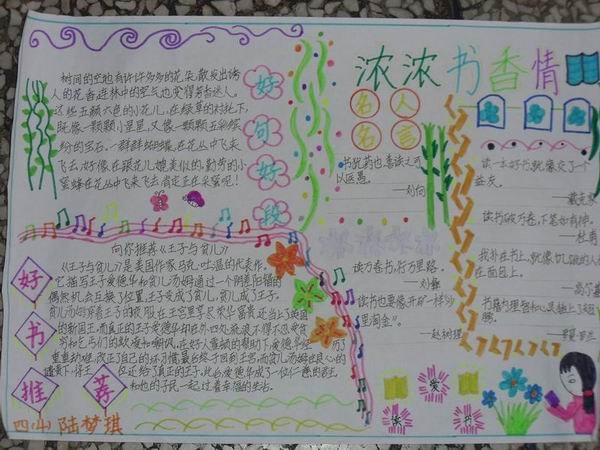 浓浓书香情
好句好段
树间的空地有许许多多的花朵,散发出诱
人的花香,连林中的空气也变得芳香迷人。
这些五颜六色的小花儿,在绿草的衬托下,
既像一颗颗小星星,又像一颗颗五彩缤
纷的宝石。一群群蝴蝶,在花丛中飞
飞去,好像在跟花儿媲美似的,勤劳的小
蜜蜂在花丛中飞来飞去肯定正在采蜜呢!
好书推荐
向你推荐《王子与贫儿》
《王子与贫儿》是美国作家马克·吐温的代表作。
它描写王子爱德华和贫儿汤姆通过一个阴差阳错的
偶然机会互换了位置,王子变成了贫儿,贫儿成了王子。
贫儿汤姆穿着王子的衣服,在王宫里享尽荣华富贵,还当上了英国
的新国王,而真正的王子爱德华却在外四处流浪,
重重劫难,改正了自己的坏习惯,最后终于回到王宫,而贫儿汤姆也良心的
还给了真正的王子,此后爱德华成了一位仁慈的君王,
和他的子民一起过着幸福的生活。
名人名言
书犹药也,善读之可
以医愚。
——刘向
读万卷书,行万里路。
——刘彝
读书也要像开矿一样"沙
里淘金"。
——赵树理
读一本好书,就像交了一个
益友。
——臧克家
读书破万卷,下笔如有神。
——杜甫
我扑在书上,就像饥饿的人扑
在面包上。
——高尔基
读
爱
书
四(4) 陆梦琪